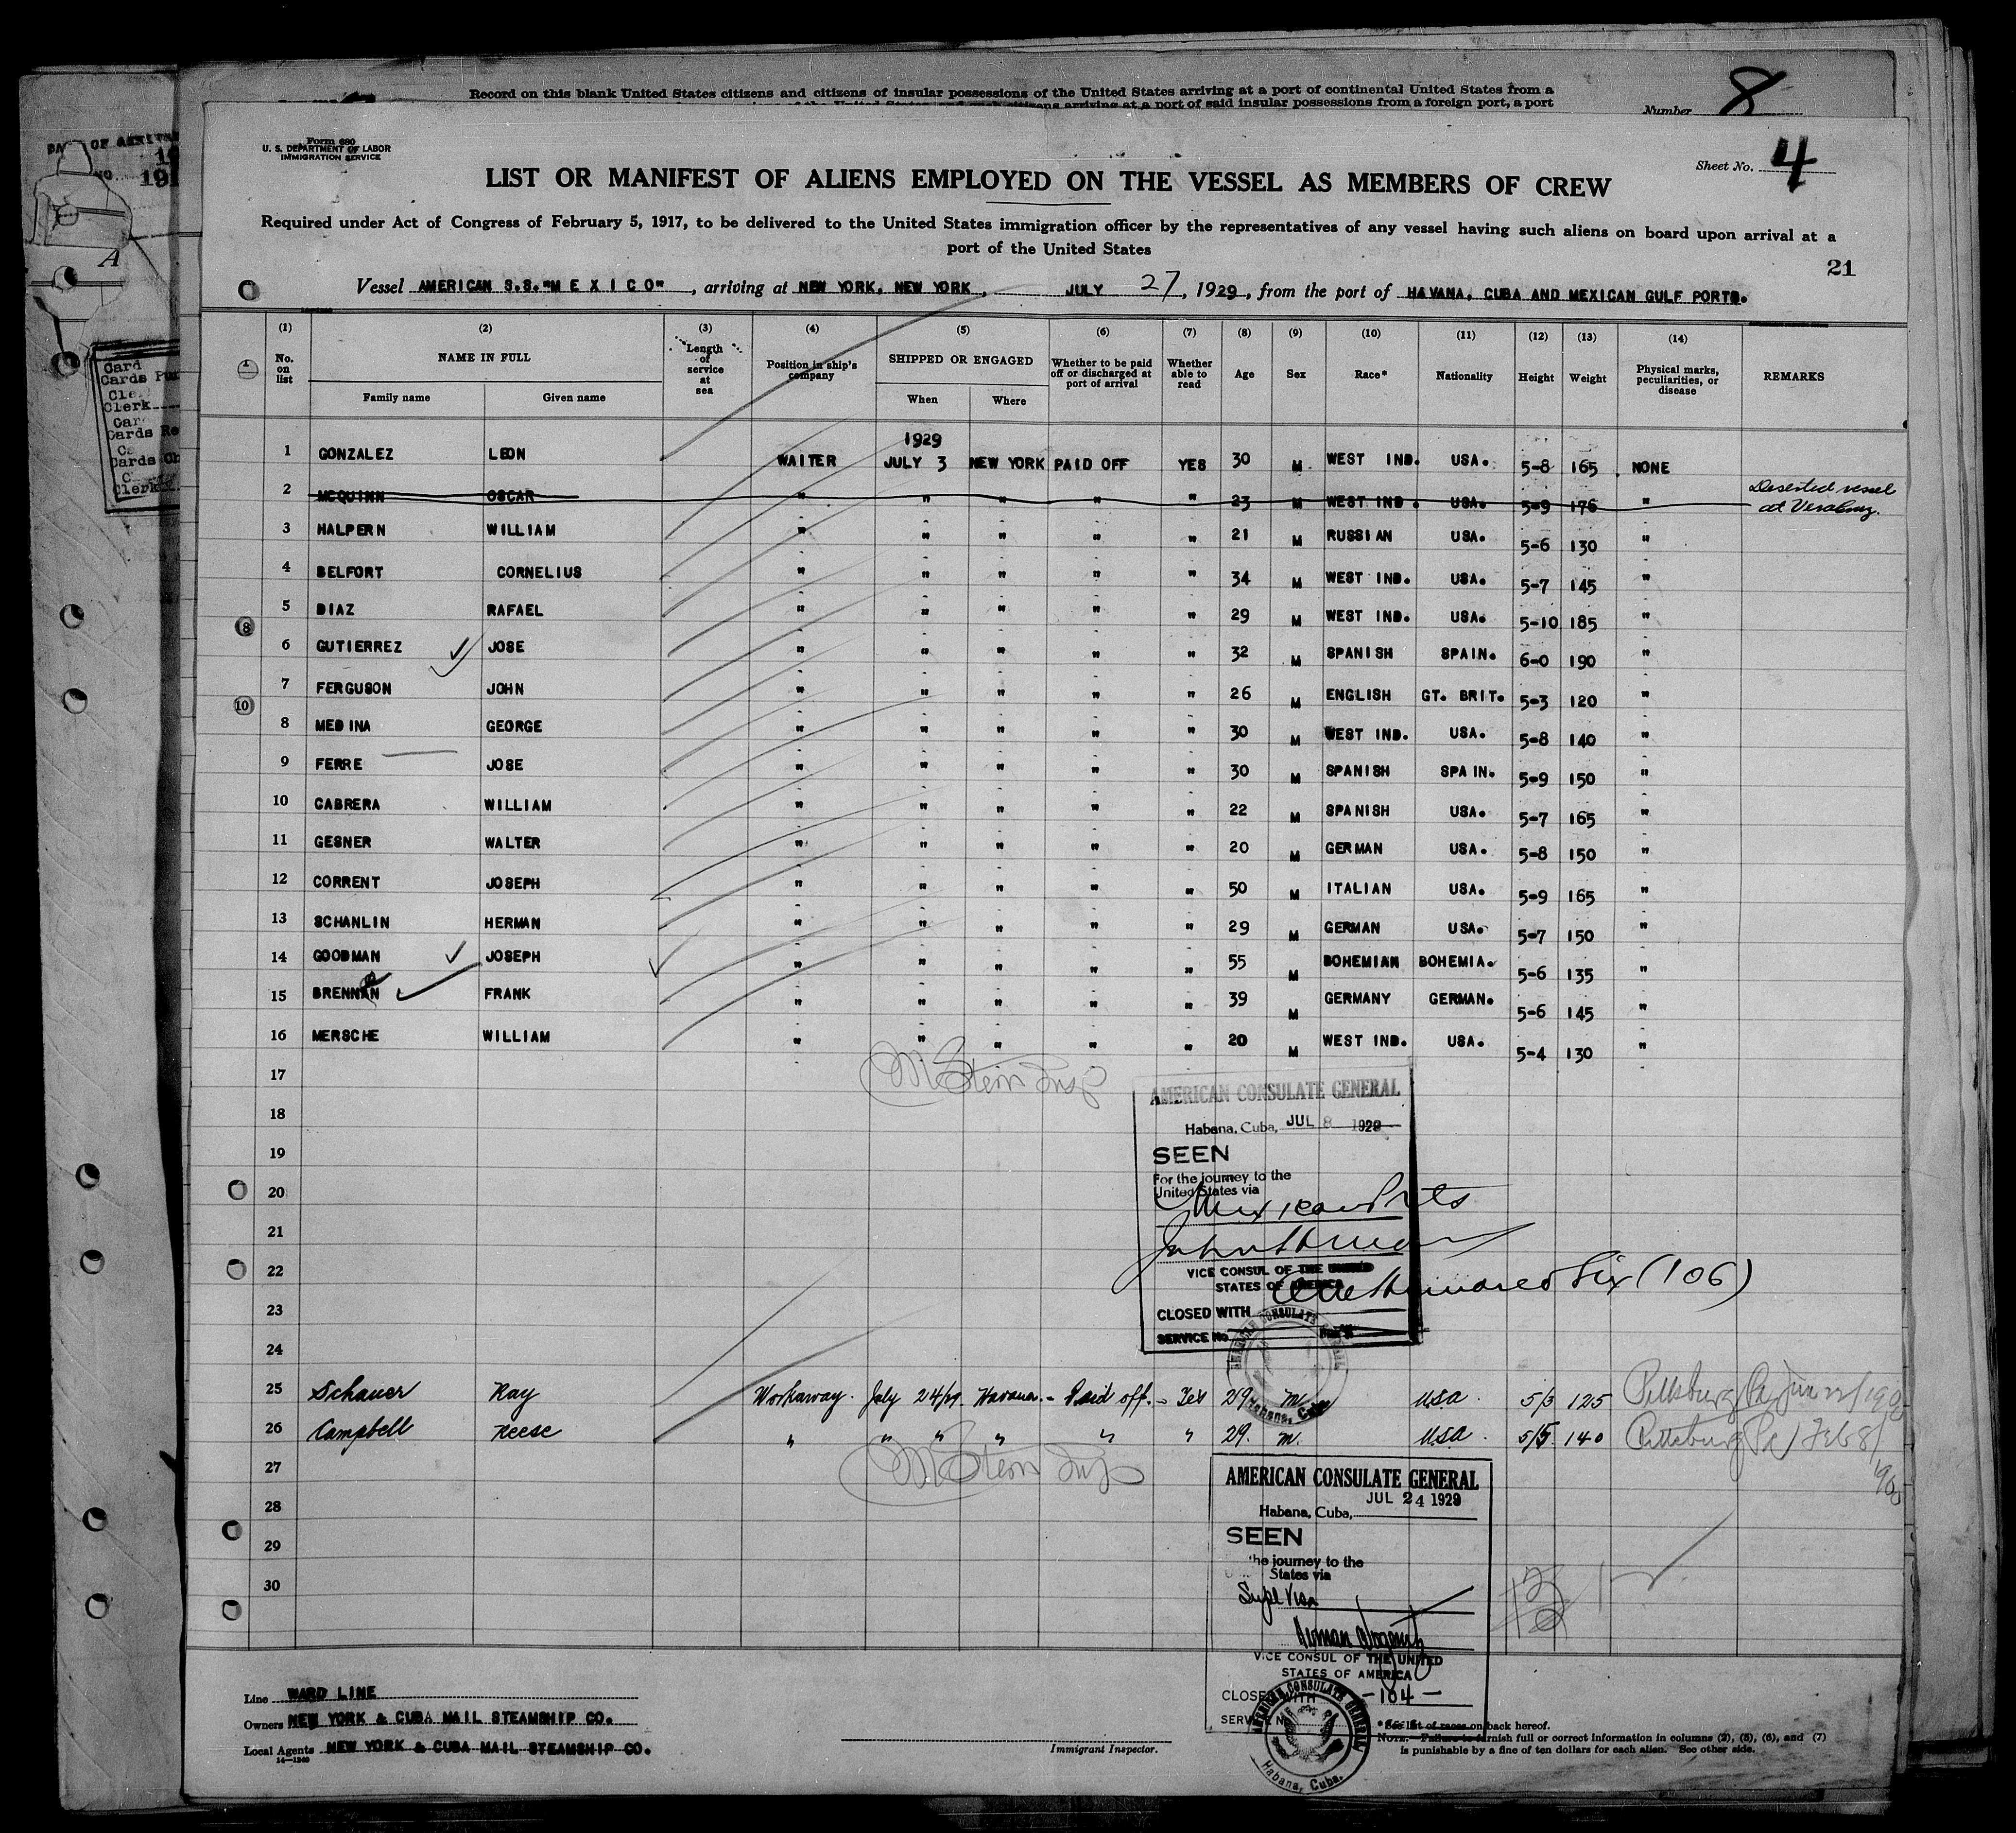 Record on this blank United States citizens and citizens of insular possessions of the United States arriving at a port of continental United States from a
Number 8
Form 680
U. S. DEPARTMENT OF LABOR
IMMIGRATION SERVICE
Sheet No. 4
LIST OR MANIFEST OF ALIENS EMPLOYED ON THE VESSEL AS MEMBERS OF CREW
Required under Act of Congress of February 5, 1917, to be delivered to the United States immigration officer by the representatives of any vessel having such aliens on board upon arrival at a
port of the United States
21
Vessel AMERICAN S.S."MEXICO", arriving at NEW YORK, NEW YORK, JULY 27, 1929, from the port of HAVANA, CUBA AND MEXICAN GULF PORTS.
(1) (2) (3) (4) (5) (6) (7) (8) (9) (10) (11) (12) (13) (14)
No. on list NAME IN FULL Length of service at sea Position in ship's company SHIPPED OR ENGAGED Whether to be paid off or discharged at port of arrival Whether able to read Age Sex Race* Nationality Height Weight Physical marks, peculiarities, or disease REMARKS
Family name Given name When Where
1929
1 GONZALEZ LEON WAITER JULY 3 NEW YORK PAID OFF YES 30 M WEST IND. USA. 5-8 165 NONE
2 MCQUINN OSCAR " " " " " 23 M WEST IND. USA. 5-9 176 " Deserted vessel
at Vera Cruz.
3 HALPERN WILLIAM " " " " " 21 M RUSSIAN USA. 5-6 130 "
4 BELFORT CORNELIUS " " " " " 34 M WEST IND. USA. 5-7 145 "
5 DIAZ RAFAEL " " " " " 29 M WEST IND. USA. 5-10 185 "
6 GUTIERREZ JOSE " " " " " 32 M SPANISH SPAIN. 6-0 190 "
7 FERGUSON JOHN " " " " " 26 M ENGLISH GT. BRIT. 5-3 120 "
8 MEDINA GEORGE " " " " " 30 M WEST IND. USA. 5-8 140 "
9 FERRE JOSE " " " " " 30 M SPANISH SPAIN. 5-9 150 "
10 CABRERA WILLIAM " " " " " 22 M SPANISH USA. 5-7 165 "
11 GESNER WALTER " " " " " 20 M GERMAN USA. 5-8 150 "
12 CORRENT JOSEPH " " " " " 50 M ITALIAN USA. 5-9 165 "
13 SCHANLIN HERMAN " " " " " 29 M GERMAN USA. 5-7 150 "
14 GOODMAN JOSEPH " " " " " 55 M BOHEMIAN BOHEMIA. 5-6 135 "
15 BRENNAN FRANK " " " " " 39 M GERMANY GERMAN. 5-6 145 "
16 MERSCHE WILLIAM " " " " " 20 M WEST IND. USA. 5-4 130 "
17
M Stern Insp
AMERICAN CONSULATE GENERAL
18
Habana, Cuba, JUL 8 1929
19
SEEN
For the journey to the
20
United States via
Mexican Ports
21
22
VICE CONSUL OF THE UNITED
STATES OF AMERICA
One Hundred Six (106)
23
CLOSED WITH
SERVICE No.
24
25 Schauer Ray Workaway. July 24/29. Havana. - Paid off. - Yes 29 M. USA. 5/3 125 Pittsburg Pa
26 Campbell Reese " " " " " " 29. M. USA. 5/5 140 Pittsburg Pa Feb 8/
1900
27
M Stern Insp
AMERICAN CONSULATE GENERAL
28
Habana, Cuba, JUL 24 1929
SEEN
29
the journey to the
States via
30
Supl Visa
VICE CONSUL OF THE UNITED
STATES OF AMERICA
CLOSED WITH -104-
AMERICAN CONSULATE GENERAL
Habana, Cuba.
Line WARD LINE
Owners NEW YORK & CUBA MAIL STEAMSHIP CO.
Local Agents NEW YORK & CUBA MAIL STEAMSHIP CO.
14-1240
Immigrant Inspector.
* See list of races on back hereof.
NOTE.—Failure to furnish full or correct information in columns (2), (5), (6), and (7)
is punishable by a fine of ten dollars for each alien. See other side.